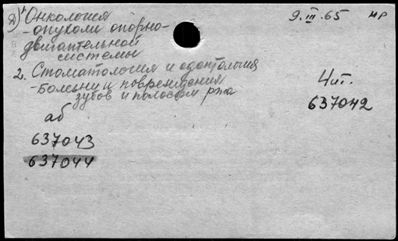 1. Онкология
- опухоли опорно-
двигательной
системы
9.III.65
2. Стоматология и одонтология
- болезни и повреждения
зубов и полости рта
Чит.
637042
аб
637043
637044